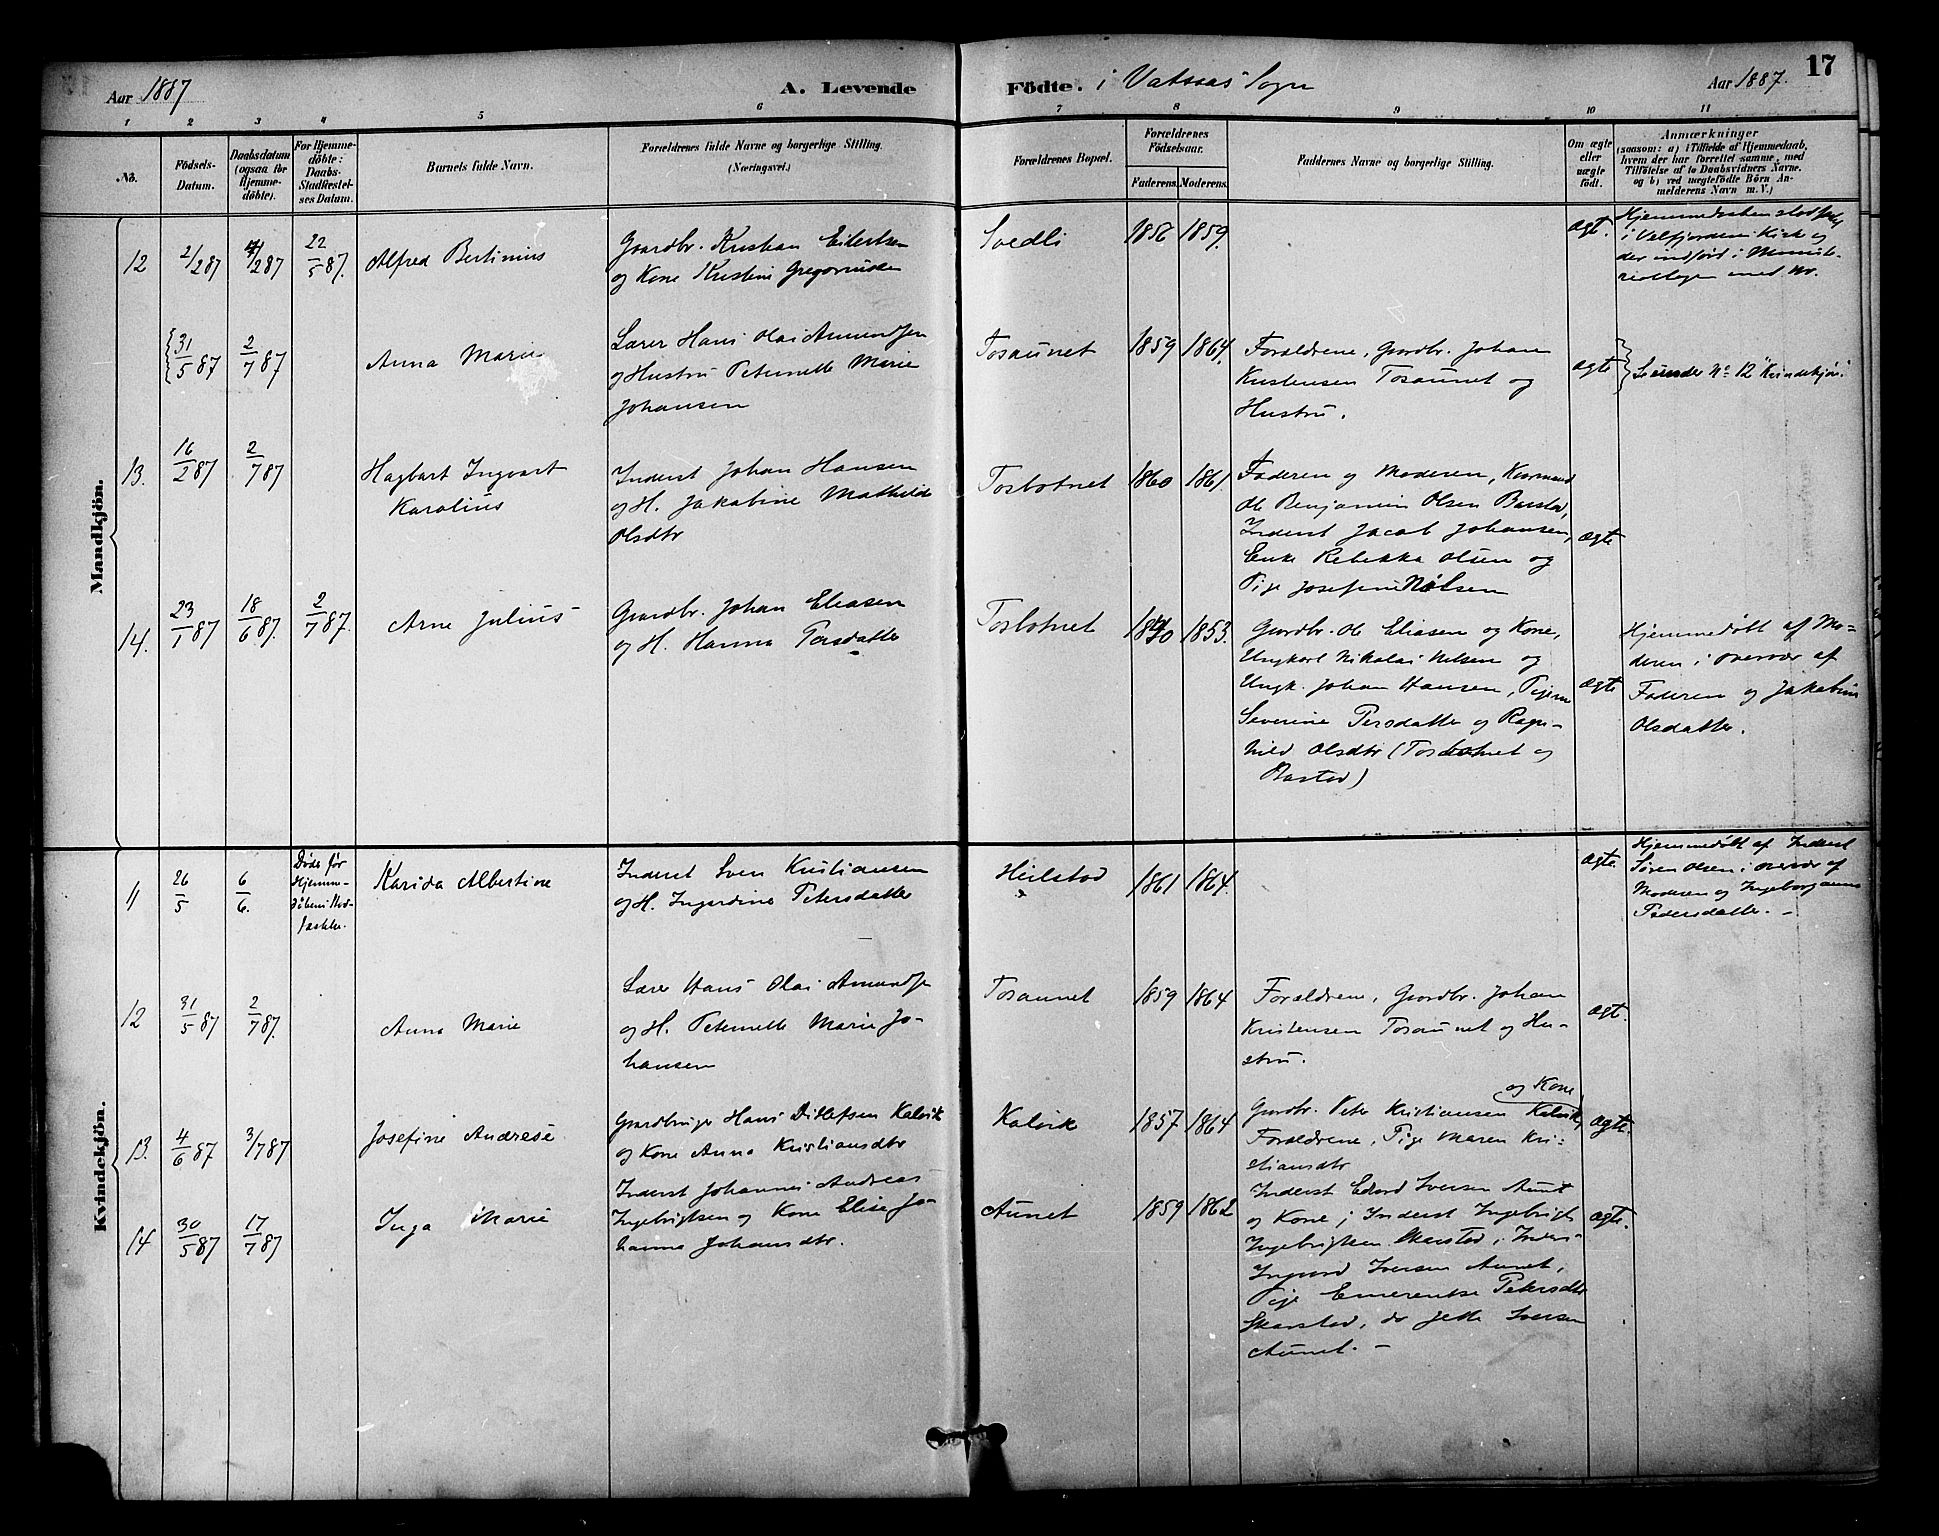 Aar 1887
A. Levende
Födte. i Vatsaas Sogn
Aar 1887.
17
1 2 3 4 5 6 7 8 9 10 11
No.
Födsels-
Datum.
Daabsdatum
(ogsaa for
Hjemme-
döbte).
For Hjemme-
döbte:
Daabs-
Stadfæstel-
ses Datum.
Barnets fulde Navn.
Forældrenes fulde Navne og borgerlige Stilling.
(Næringsvei.)
Forældrenes Bopæl.
Forældrenes
Födselsaar.
Faderens. Moderens.
Faddernes Navne og borgerlige Stilling.
Om ægte
eller
uægte
født.
Anmærkninger
(saasom: a) i Tilfælde af Hjemmedaab,
hvem der har forrettet samme, med
Tilföielse af to Daabsvidners Navne.
og b) ved uægtefödte Börn An-
melderens Navn m. V.)
Mandkjön.
12 2/2 87 4/2 87 22/5 87. Alfred Bertinius
Gaardbr. Kristian Eilertsen
og Kone Kristine
Svedli 1856 1859. ægte.
Hjemmedaaben
i Velfjordens Kirke og
der indført i Ministe-
rialbogen med No.
31/5 87 2/7 87 Anna Marie
Lærer Hans Olai Amundsen
og Hustru Peternelle Marie
Johansen
Tosaunet 1859 1864.
Forældrene, Gardbr. Johan
Kristensen Tosaunet og
Hustru.
ægte Se under No 12 "Kvindekjøn".
13. 16/2 87 2/7 87 Hagbart Ingvart
Karolius
Inderst Johan Hansen
og H. Jakobine Mathilde
Olsdtr
Tosbotnet 1860 1861.
Faderen og Moderen,
Ole Benjamin Olsen Barstad,
Inderst Jacob Johansen,
Enke Rebekka Olsen og
Pige Josefine Nilsen
ægte
14. 23/1 87 18/6 87. 2/7 87. Arne Julius
Gaardbr. Johan Eliasen
og H. Hanna Persdatter
Tosbotnet 1853.
Gardbr. Ole Eliasen og Kone,
Ungkarl Nikolai Nilsen og
Ungk. Johan Hansen, Pigerne
Severine Persdatter og Ragn-
hild Olsdtr (Tosbotnet og
Barstad)
ægte
Hjemmedøbt af Mo-
deren i overvær af
Faderen og Jakobine
Olsdatter.
Kvindekjön.
11 26/5 6/6. Døde før
Hjemme-
daabens Stad-
fæstelse.
Karida Albertine
Inderst Sven Kristiansen
og H. Ingardine Petersdatter
Heilstad 1861 1864. ægte.
Hjemmedøbt af Inderst
Søren Olsen i overvær af
Moderen og Ingeborganna
Pedersdatter. -
12 31/5 87 2/7 87. Anna Marie
Lærer Hans Olai Amundsen
og H. Peternelle Marie Jo-
hansen
Tosaunet 1859 1864
Forældrene, Gardbr. Johan
Kristensen Tosaunet og Hu-
stru.
ægt.
13. 4/6 87 3/7 87 Josefine Andrese
Gaardbruger Hans Ditlefsen Kalvik
og Kone Anna Kristiansdtr
Kalvik 1857 1864
og Kone
Gardbr. Peter Kristiansen Kalvik,
Forældrene, Pige Maren Kri-
stiansdtr
ægte.
14 30/5 87 17/7 87 Inga Marie
Inderst Johannes Andreas
Ingebrigtsen og Kone Elise Jo-
hanna Johansdtr.
Aunet 1859 1862
Inderst Edvard Iversen Aunet
og Kone; Inderst Ingebrigt
Ingebrigtsen Skarstad, Inders-
Ingvard Iversen Aunet,
Pige Emerentse Petersdtr
Skarstad, do Jette Iversen
Aunet. -
ægte.